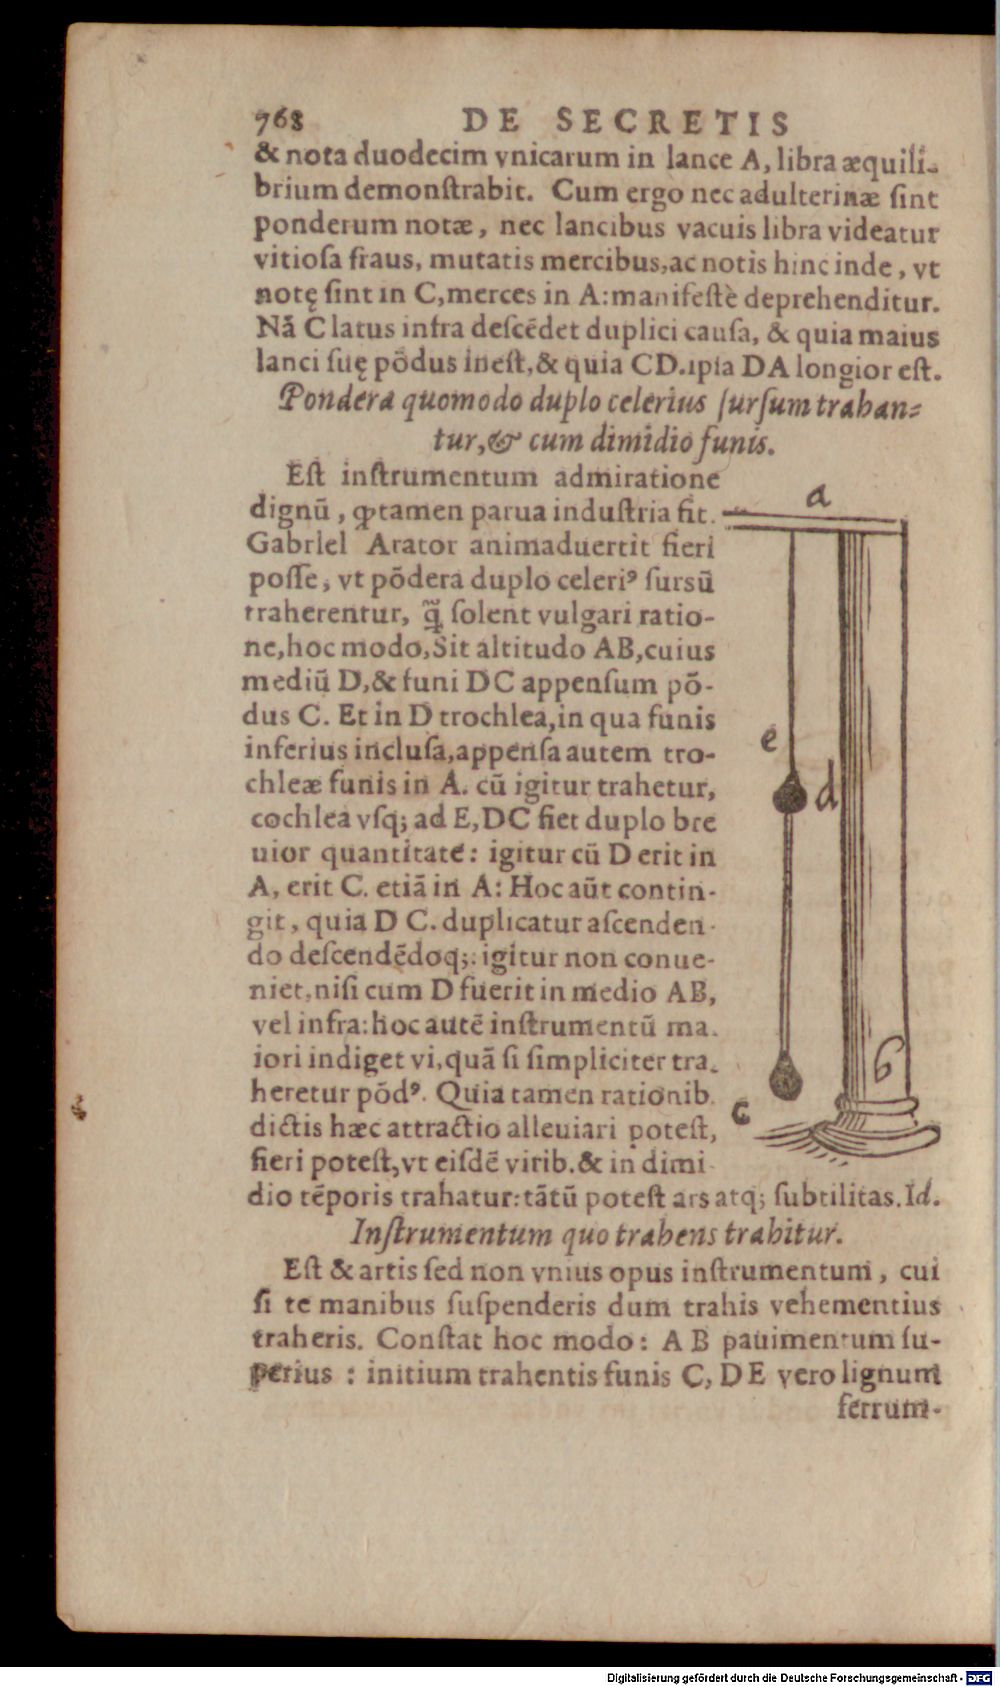 768 DE SECRETIS
& nota duodecim vnicarum in lance A, libra æquili-
brium demonſtrabit. Cum ergo nec adulterinæ ſint
ponderum notæ, nec lancibus vacuis libra videatur
vitioſa fraus, mutatis mercibus, ac notis hinc inde, vt
notę ſint in C, merces in A: manifeſtè deprehenditur.
Nã C latus infra deſcẽdet duplici cauſa, & quia maius
lanci ſuę põdus ineſt, & quia CD. ipſa DA longior eſt.
Pondera quomodo duplo celerius ſurſum traban-
tur, & cum dimidio funis.
Eſt inſtrumentum admiratione
dignũ, ꝙ tamen parua induſtria fit.
Gabriel Arator animaduertit fieri
poſſe, vt põdera duplo celeriꝰ ſursũ
traherentur, q̃ ſolent vulgari ratio-
ne, hoc modo, Sit altitudo AB, cuius
mediũ D, & funi DC appenſum põ-
dus C. Et in D trochlea, in qua funis
inferius incluſa, appenſa autem tro-
chleæ funis in A. cũ igitur trahetur,
cochlea vſq; ad E, DC fiet duplo bre
uior quantitate: igitur cũ D erit in
A, erit C. etiã in A: Hoc aũt contin-
git, quia D C. duplicatur aſcenden-
do deſcendẽdoq;: igitur non conue-
niet, niſi cum D fuerit in medio AB,
vel infra: hoc autẽ inſtrumentũ ma-
iori indiget vi, quã ſi ſimpliciter tra-
heretur põdꝰ. Quia tamen rationib.
dictis hæc attractio alleuiari poteſt,
fieri poteſt, vt eiſdẽ virib. & in dimi-
dio tẽporis trahatur: tãtũ poteſt ars atq; ſubtilitas. Id.
Inſtrumentum quo trahens trahitur.
Eſt & artis ſed non vnius opus inſtrumentum, cui
ſi te manibus ſuſpenderis dum trahis vehementius
traheris. Conſtat hoc modo: A B pauimentum ſu-
perius: initium trahentis funis C, DE vero lignum
ferrum-
a
e
d
b
c
Digitalisierung gefördert durch die Deutsche Forschungsgemeinschaft - DFG